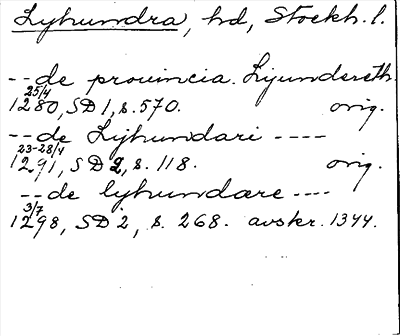 Lyhundra, hd, Stockh. l.
--de prouincia. Lijundereth.
25/4
1280, SD 1, s. 570. orig.
--de Lijhundari ----
23-28/4
1291, SD 2, s. 118. orig.
--de lyhundære ----
3/7
1298, SD 2, s. 268. avskr. 1344.